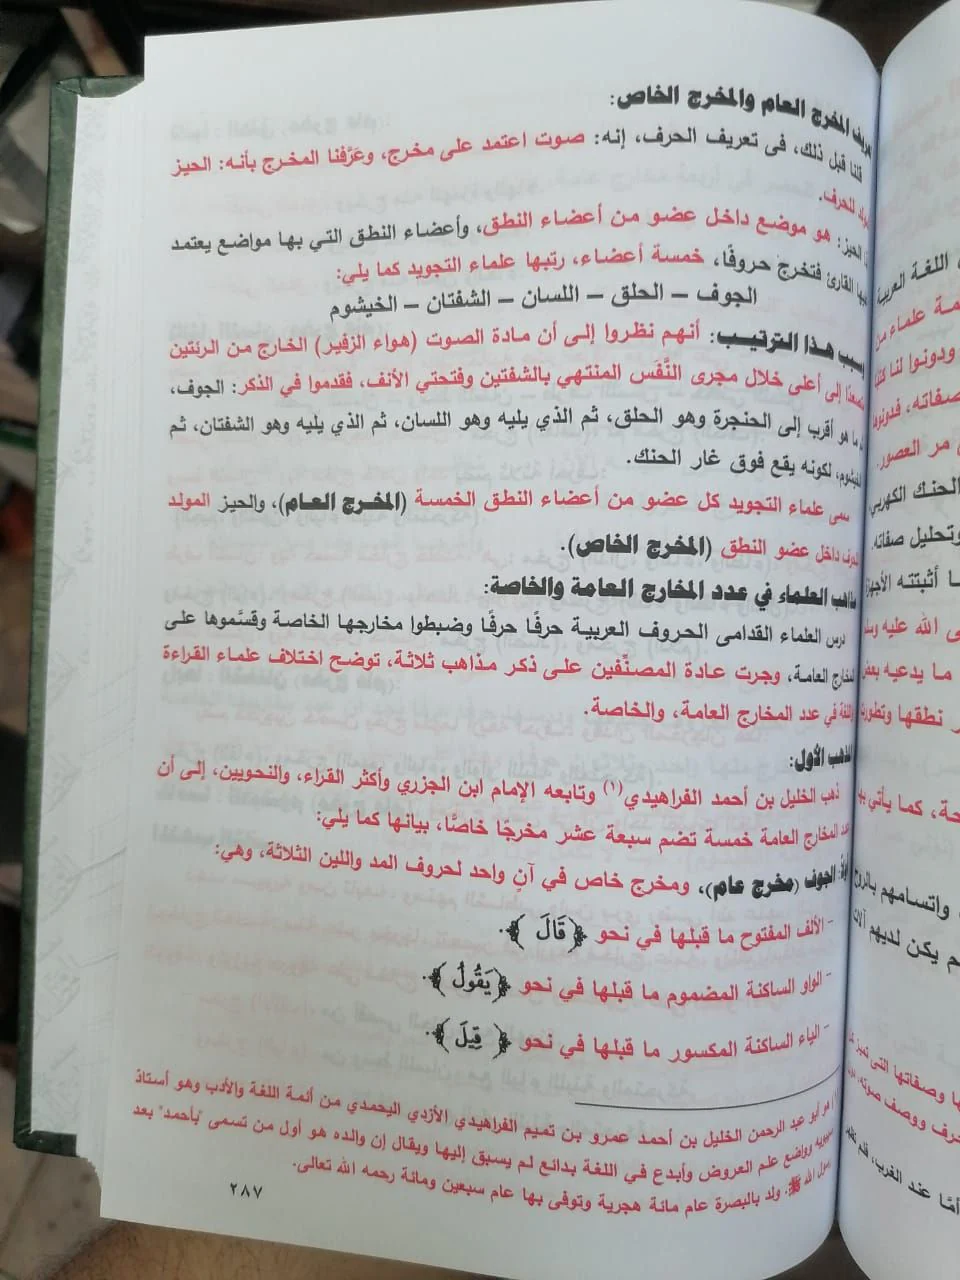 تعريف المخرج العام والمخرج الخاص:
قلنا قبل ذلك، فى تعريف الحرف، إنه: صوت اعتمد على مخرج، وعَرَّفنا المخرج بأنه: الحيز
المولد للحرف.
الحيز: هو موضع داخل عضو من أعضاء النطق، وأعضاء النطق التي بها مواضع يعتمد
عليها القارئ فتخرج حروفًا، خمسة أعضاء، رتبها علماء التجويد كما يلي:
الجوف – الحلق – اللسان – الشفتان – الخيشوم
وسبب هذا الترتيب: أنهم نظروا إلى أن مادة الصوت (هواء الزفير) الخارج من الرئتين
متصعدًا إلى أعلى خلال مجرى النَّفَس المنتهي بالشفتين وفتحتي الأنف، فقدموا في الذكر: الجوف،
ما هو أقرب إلى الحنجرة وهو الحلق، ثم الذي يليه وهو اللسان، ثم الذي يليه وهو الشفتان، ثم
الخيشوم، لكونه يقع فوق غار الحنك.
سمى علماء التجويد كل عضو من أعضاء النطق الخمسة (المخرج العام)، والحيز المولد
للحرف داخل عضو النطق (المخرج الخاص).
مذاهب العلماء في عدد المخارج العامة والخاصة:
درس العلماء القدامى الحروف العربية حرفًا حرفًا وضبطوا مخارجها الخاصة وقسَّموها على
المخارج العامة، وجرت عادة المصنِّفين على ذكر مذاهب ثلاثة، توضح اختلاف علماء القراءة
واللغة في عدد المخارج العامة، والخاصة.
المذهب الأول:
ذهب الخليل بن أحمد الفراهيدي(١) وتابعه الإمام ابن الجزري وأكثر القراء، والنحويين، إلى أن
عدد المخارج العامة خمسة تضم سبعة عشر مخرجًا خاصًّا، بيانها كما يلي:
أولاً: الجوف (مخرج عام)، ومخرج خاص في آنٍ واحد لحروف المد واللين الثلاثة، وهي:
- الألف المفتوح ما قبلها في نحو ﴿قَالَ﴾.
- الواو الساكنة المضموم ما قبلها في نحو ﴿يَقُولُ﴾.
- الياء الساكنة المكسور ما قبلها في نحو ﴿قِيلَ﴾.
(١) هو أبو عبد الرحمن الخليل بن أحمد عمرو بن تميم الفراهيدي الأزدي اليحمدي من أئمة اللغة والأدب وهو أستاذ
سيبويه وواضع علم العروض وأبدع في اللغة بدائع لم يسبق إليها ويقال إن والده هو أول من تسمى "بأحمد" بعد
رسول الله ﷺ. ولد بالبصرة عام مائة هجرية وتوفى بها عام سبعين ومائة رحمه الله تعالى.
٢٨٧
اللغة العربية
علماء من
ودونوا لنا
مر العصور.
الحنك
وتحليل صفاته.
أثبتته
الله عليه
ما يدعيه بعض
نطقها
كما يأتي
واتسامهم
م يكن لديهم آلات
وصفاتها التى
ووصف صوته،
عند الغرب، فلم